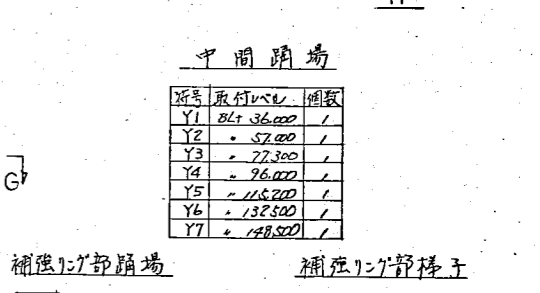 中間踊場
符号 取付レベル 個数
Y1 BL+ 36.000 1
Y2 〃 57.000 1
Y3 〃 77.300 1
Y4 〃 96.000 1
Y5 〃 115.200 1
Y6 〃 132.500 1
Y7 〃 148.500 1
G
補強リング部踊場 補強リング部梯子